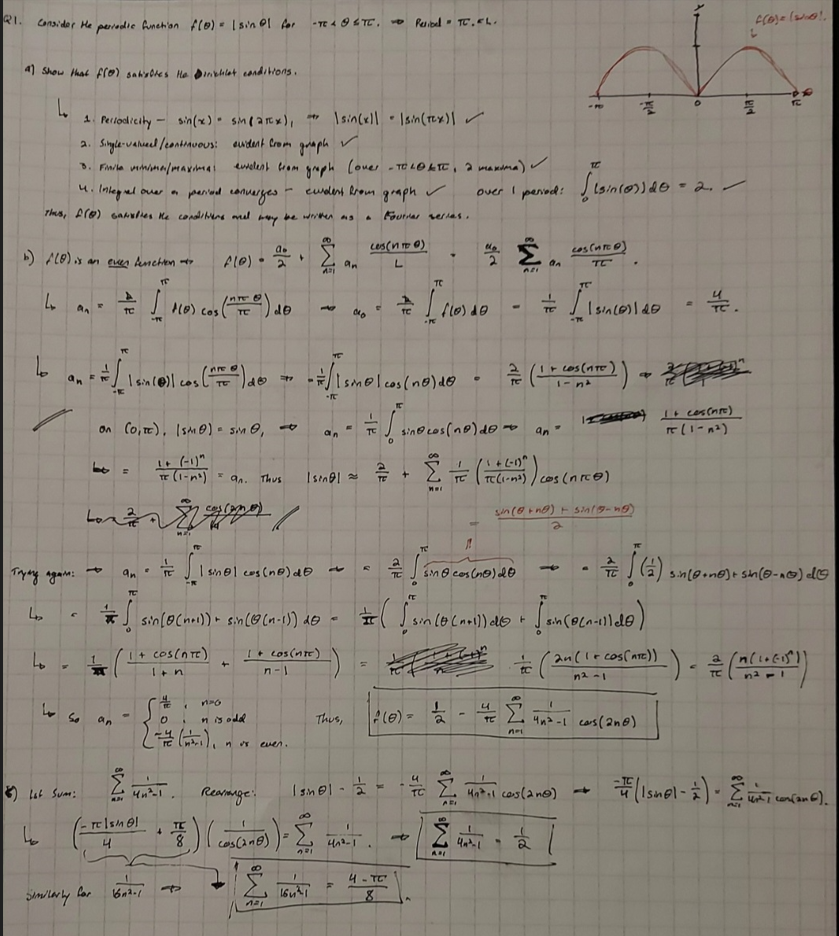 Q1. Consider the periodic function f(θ) = |sin θ| for -π < θ ≤ π. ⇒ Period = π = L.
f(θ) = |sin θ|.
-π -π/2 0 π/2 π θ
a) Show that f(θ) satisfies the Dirichlet conditions.
↳ 1. Periodicity - sin(x) = sin(2πx), ⇒ |sin(x)| = |sin(πx)| ✓
2. Single-valued/continuous: evident from graph ✓
3. Finite minima/maxima: evident from graph (over -π<θ≤π, 2 maxima) ✓
4. Integral over a period converges - evident from graph ✓ over 1 period: ∫₀^π |sin(θ)| dθ = 2. ✓
Thus, f(θ) satisfies the conditions and may be written as a Fourier series.
b) f(θ) is an even function → f(θ) = a₀/2 + ∑_{n=1}^∞ aₙ cos(nπθ)/L = a₀/2 ∑_{n=1}^∞ aₙ cos(nπθ)/π.
↳ aₙ = 2/π ∫_{-π}^π f(θ) cos(nπθ/π) dθ → a₀ = 2/π ∫_{-π}^π f(θ) dθ = 1/π ∫_{-π}^π |sin(θ)| dθ = 4/π.
↳ aₙ = 1/π ∫_{-π}^π |sin(θ)| cos(nπθ/π) dθ ⇒ 1/π ∫_{-π}^π |sin θ| cos(nθ) dθ = 2/π ((1 + cos(nπ))/(1 - n²)) ⇒
on (0,π), |sin θ| = sin θ, ⇒ aₙ = 1/π ∫₀^π sin θ cos(nθ) dθ ⇒ aₙ = (1 + cos(nπ))/(π(1-n²))
↳ = (1 + (-1)ⁿ)/(π(1-n²)) = aₙ. Thus |sin θ| ≈ 2/π + ∑_{n=1}^∞ 1/π ((1+(-1)ⁿ)/(π(1-n²))) cos(nπθ)
= (sin(θ+nθ) + sin(θ-nθ))/2
Trying again: → aₙ = 1/π ∫_{-π}^π |sin θ| cos(nθ) dθ → = 2/π ∫₀^π sin θ cos(nθ) dθ → = 2/π ∫₀^π (1/2) sin(θ+nθ) + sin(θ-nθ) dθ
↳ = 1/π ∫₀^π sin(θ(n+1)) + sin(θ(n-1)) dθ = 1/π (∫₀^π sin(θ(n+1)) dθ + ∫₀^π sin(θ(n-1)) dθ)
↳ = 1/π ((1 + cos(nπ))/(1+n) + (1 + cos(nπ))/(n-1)) = 1/π (2n(1+cos(nπ))/(n²-1)) = 2/π (n(1+(-1)ⁿ)/(n²-1))
↳ So aₙ = { 4/π, n=0
0, n is odd
-4/π (1/(n²-1)), n is even.
Thus, f(θ) = 1/2 - 4/π ∑_{n=1}^∞ 1/(4n²-1) cos(2nθ)
c) 1st Sum: ∑_{n=1}^∞ 1/(4n²-1). Rearrange: |sin θ| - 1/2 = -4/π ∑_{n=1}^∞ 1/(4n²-1) cos(2nθ) → -π/4 (|sin θ| - 1/2) = ∑_{n=1}^∞ 1/(4n²-1) cos(2nθ).
↳ (-π|sin θ|/4 + π/8)(1/cos(2nθ)) = ∑_{n=1}^∞ 1/(4n²-1). ⇒ ∑_{n=1}^∞ 1/(4n²-1) = 1/2
Similarly for 1/(16n²-1) ⇒ ∑_{n=1}^∞ 1/(16n²-1) = (4-π)/8.